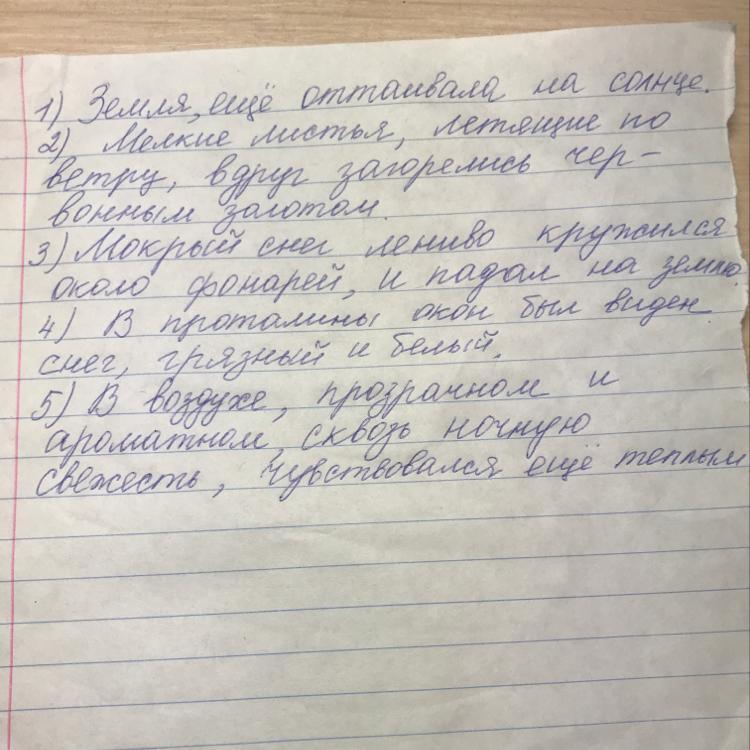 1) Земля, ещё оттаивала на солнце.
2) Мелкие листья, летящие по
ветру, вдруг загорелись чер-
вонным золотом.
3) Мокрый снег лениво кружился
около фонарей, и падал на землю.
4) В проталины окон был виден
снег, грязный и белый.
5) В воздухе, прозрачном и
ароматном, сквозь ночную
свежесть, чувствовался ещё теплым